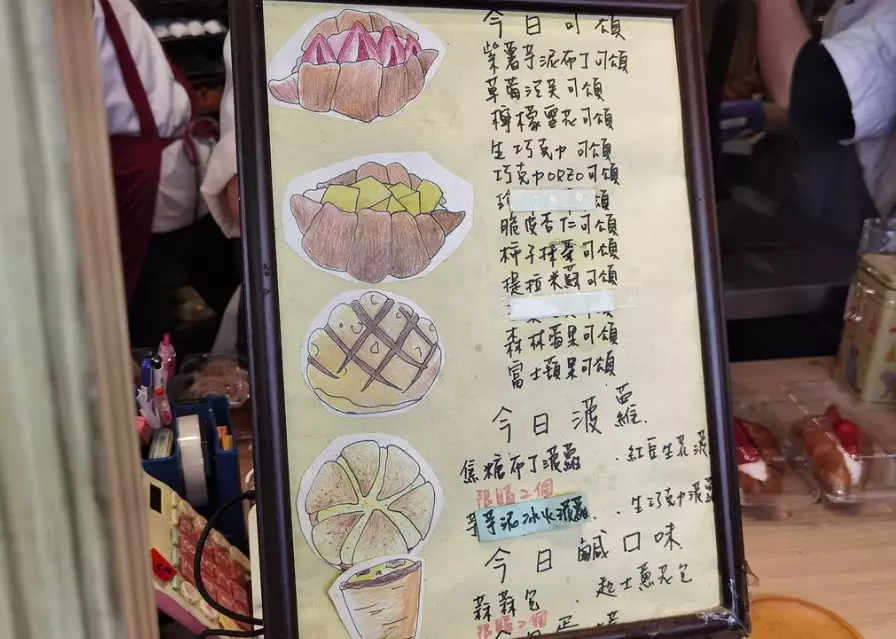 今日可頌
紫薯芋泥布丁可頌
草莓泡芙可頌
檸檬雪花可頌
生巧克力可頌
巧克力OREO可頌
頌
脆皮杏仁可頌
柿子抹茶可頌
提拉米蘇可頌
森林莓果可頌
富士蘋果可頌
今日菠蘿
焦糖布丁菠蘿 ·紅豆生花菠
限購2個
芋泥冰火菠蘿 ·生巧克力菠蘿
今日鹹口味
蒜蒜包 ·起士蔥花包
限購2個